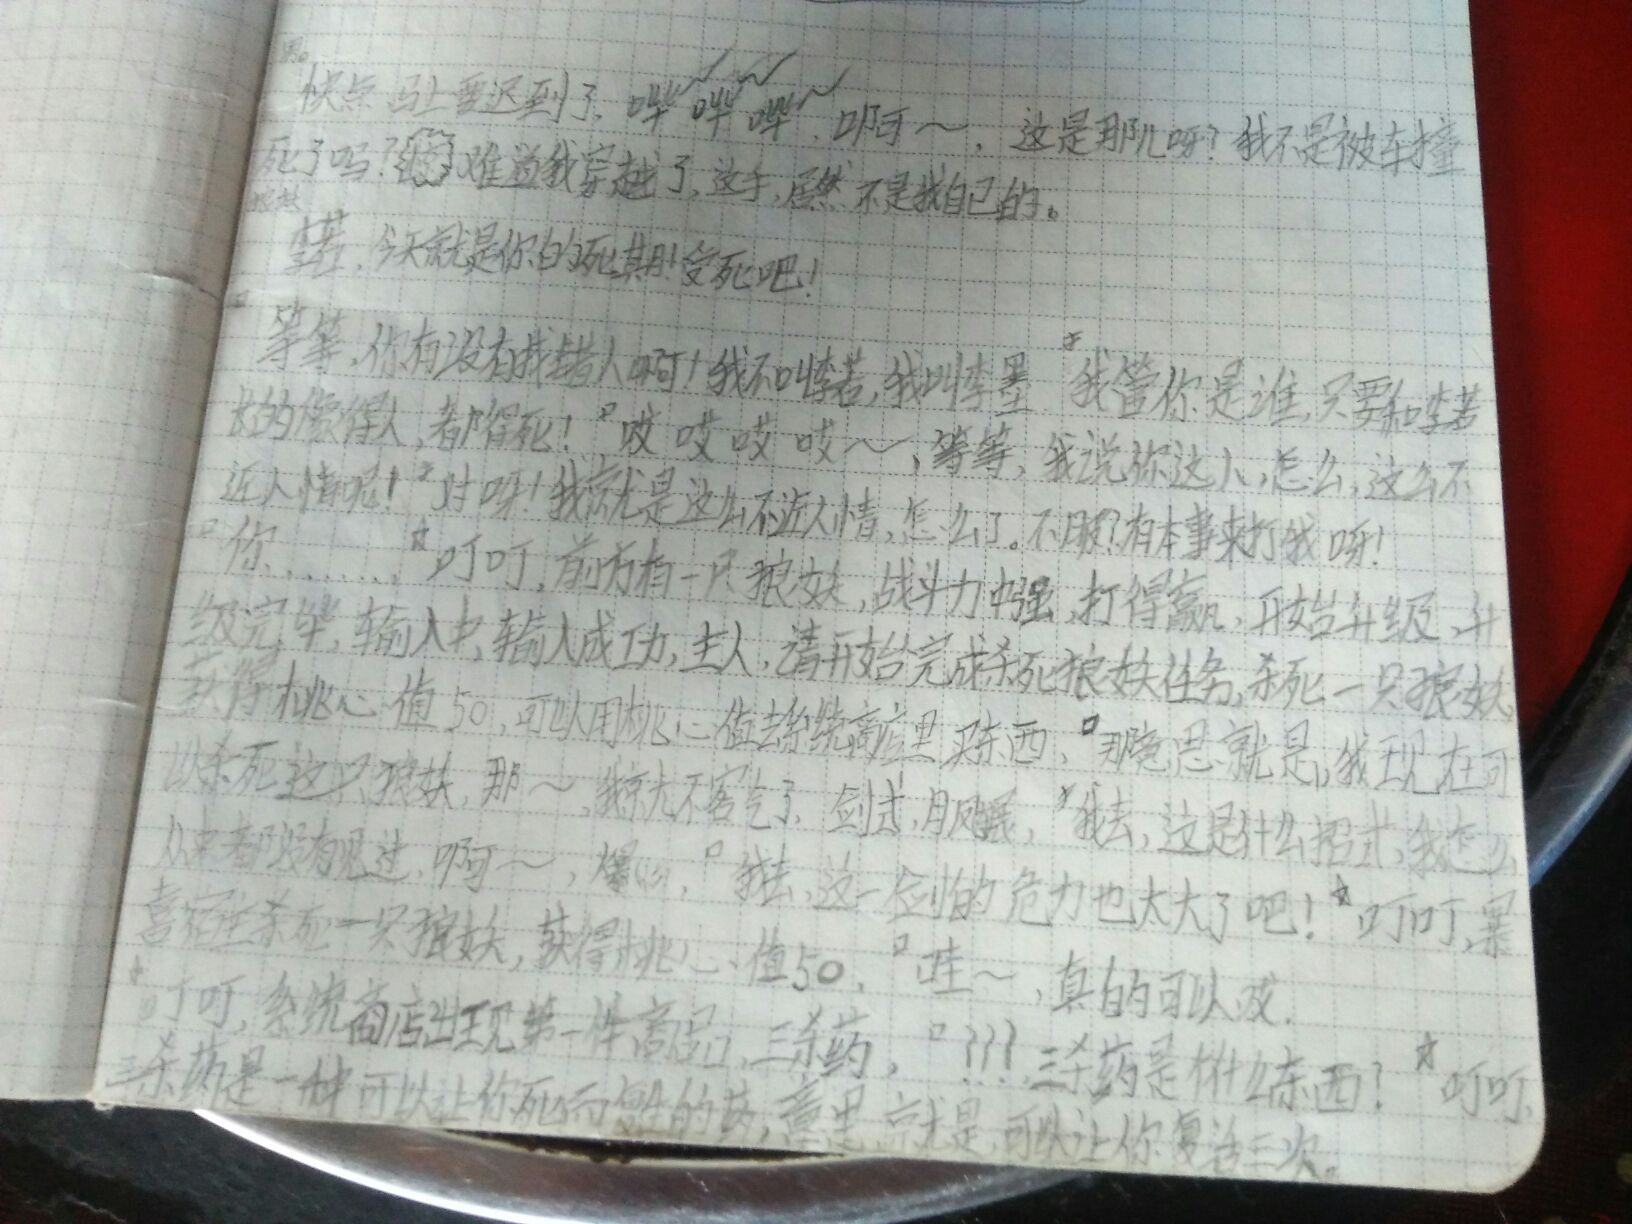 男。
快点马上要迟到了,哗哗哗,啊～,这是那儿呀?我不是被车撞
死了吗?难道我穿越了,这手,居然不是我自己的。
狼妖
李若,今天就是你的死期!受死吧!
□等等,你有没有找错人啊!我不叫李若,我叫李墨☆我管你是谁,只要和李若
长的像得人,都得死!□哎哎哎吱～,等等,我说你这人,怎么,这么不
近人情呢!☆对呀!我就是这么不近人情,怎么了。不服?有本事来打我呀!
□你.......☆叮叮,前方有一只狼妖,战斗力中强,打得赢,开始升级,升
级完毕,输入中,输入成功,主人,请开始完成杀死狼妖任务,杀死一只狼妖,
获得桃心值50,可以用桃心值去系统商店里买东西,□那意思就是,我现在可
以杀死这只狼妖,那～,我就不客气了,剑式,☆我去,这是什么招式,我怎么
从来都没有见过,啊～,爆□我去,这一剑的危力也太大了吧!☆叮叮,
喜宿主杀死一只狼妖,获得桃心值50,□哇～,真的可以哎.
☆叮叮,系统商店出现第一件商品,三杀药,□???三杀药是什么东西?☆叮叮,
三杀药是一种可以让你死而复生的药,意思就是,可以让你复活三次。